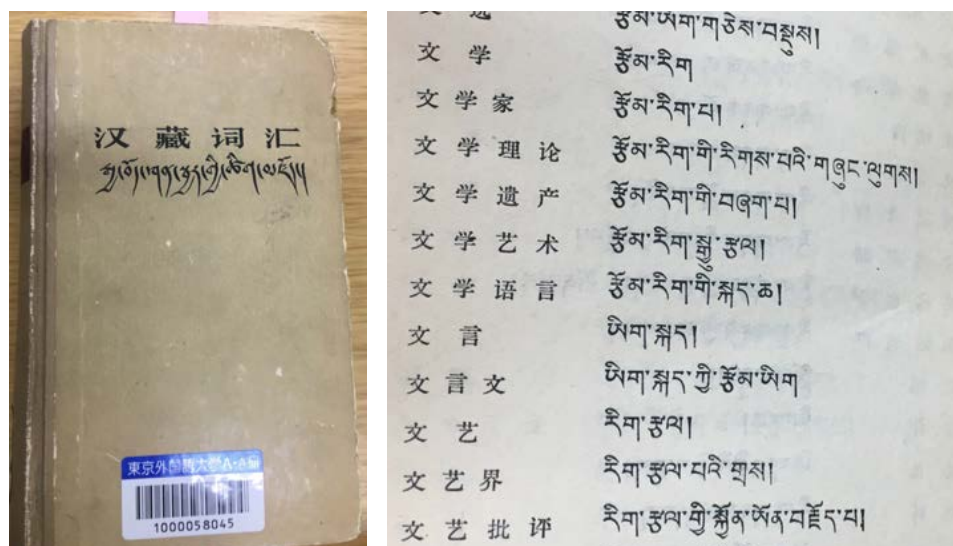 汉藏词汇
東京外国語大学A·A研
1000058045
文选 རྩོམ་ཡིག་གཅེས་བསྡུས།
文学 རྩོམ་རིག
文学家 རྩོམ་རིག་པ།
文学理论 རྩོམ་རིག་གི་རིགས་པའི་གཞུང་ལུགས།
文学遗产 རྩོམ་རིག་གི་བཞག་པ།
文学艺术 རྩོམ་རིག་སྒྱུ་རྩལ།
文学语言 རྩོམ་རིག་གི་སྐད་ཆ།
文言 ཡིག་སྐད།
文言文 ཡིག་སྐད་ཀྱི་རྩོམ་ཡིག
文艺 རིག་རྩལ།
文艺界 རིག་རྩལ་པའི་གྲས།
文艺批评 རིག་རྩལ་གྱི་སྐྱོན་ཡོན་བརྗོད་པ།